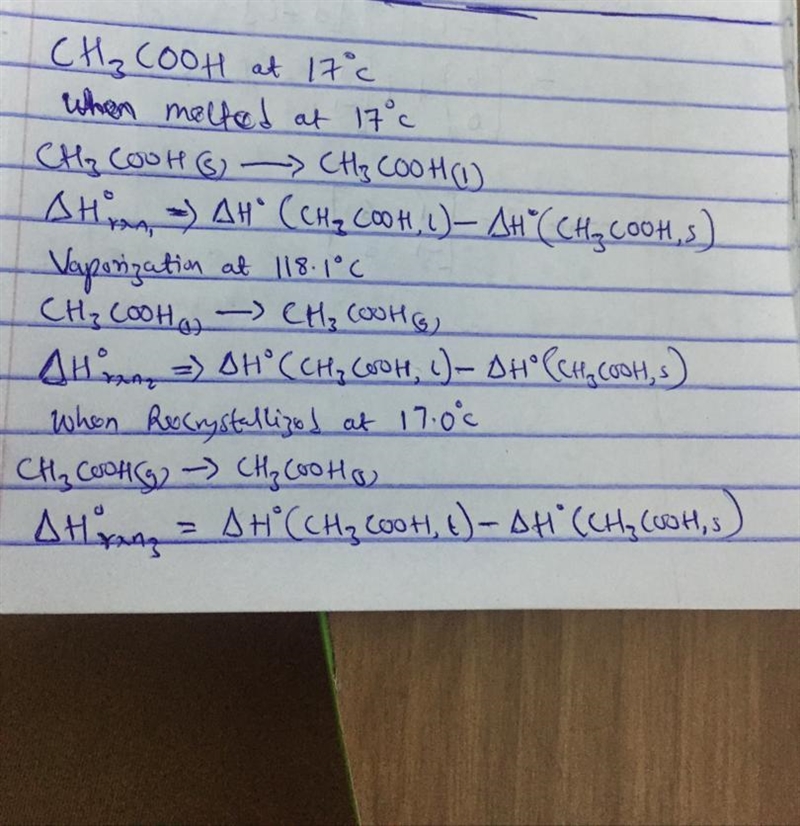 CH₃COOH at 17°C
When melted at 17°C
CH₃COOH(s) → CH₃COOH(l)
ΔH°rxn₁ ⇒ ΔH°(CH₃COOH, l) − ΔH°(CH₃COOH, s)
Vaporization at 118.1°C
CH₃COOH(l) → CH₃COOH(g)
ΔH°rxn₂ ⇒ ΔH°(CH₃COOH, l) − ΔH°(CH₃COOH, s)
When Recrystallized at 17.0°C
CH₃COOH(g) → CH₃COOH(s)
ΔH°rxn₃ = ΔH°(CH₃COOH, l) − ΔH°(CH₃COOH, s)